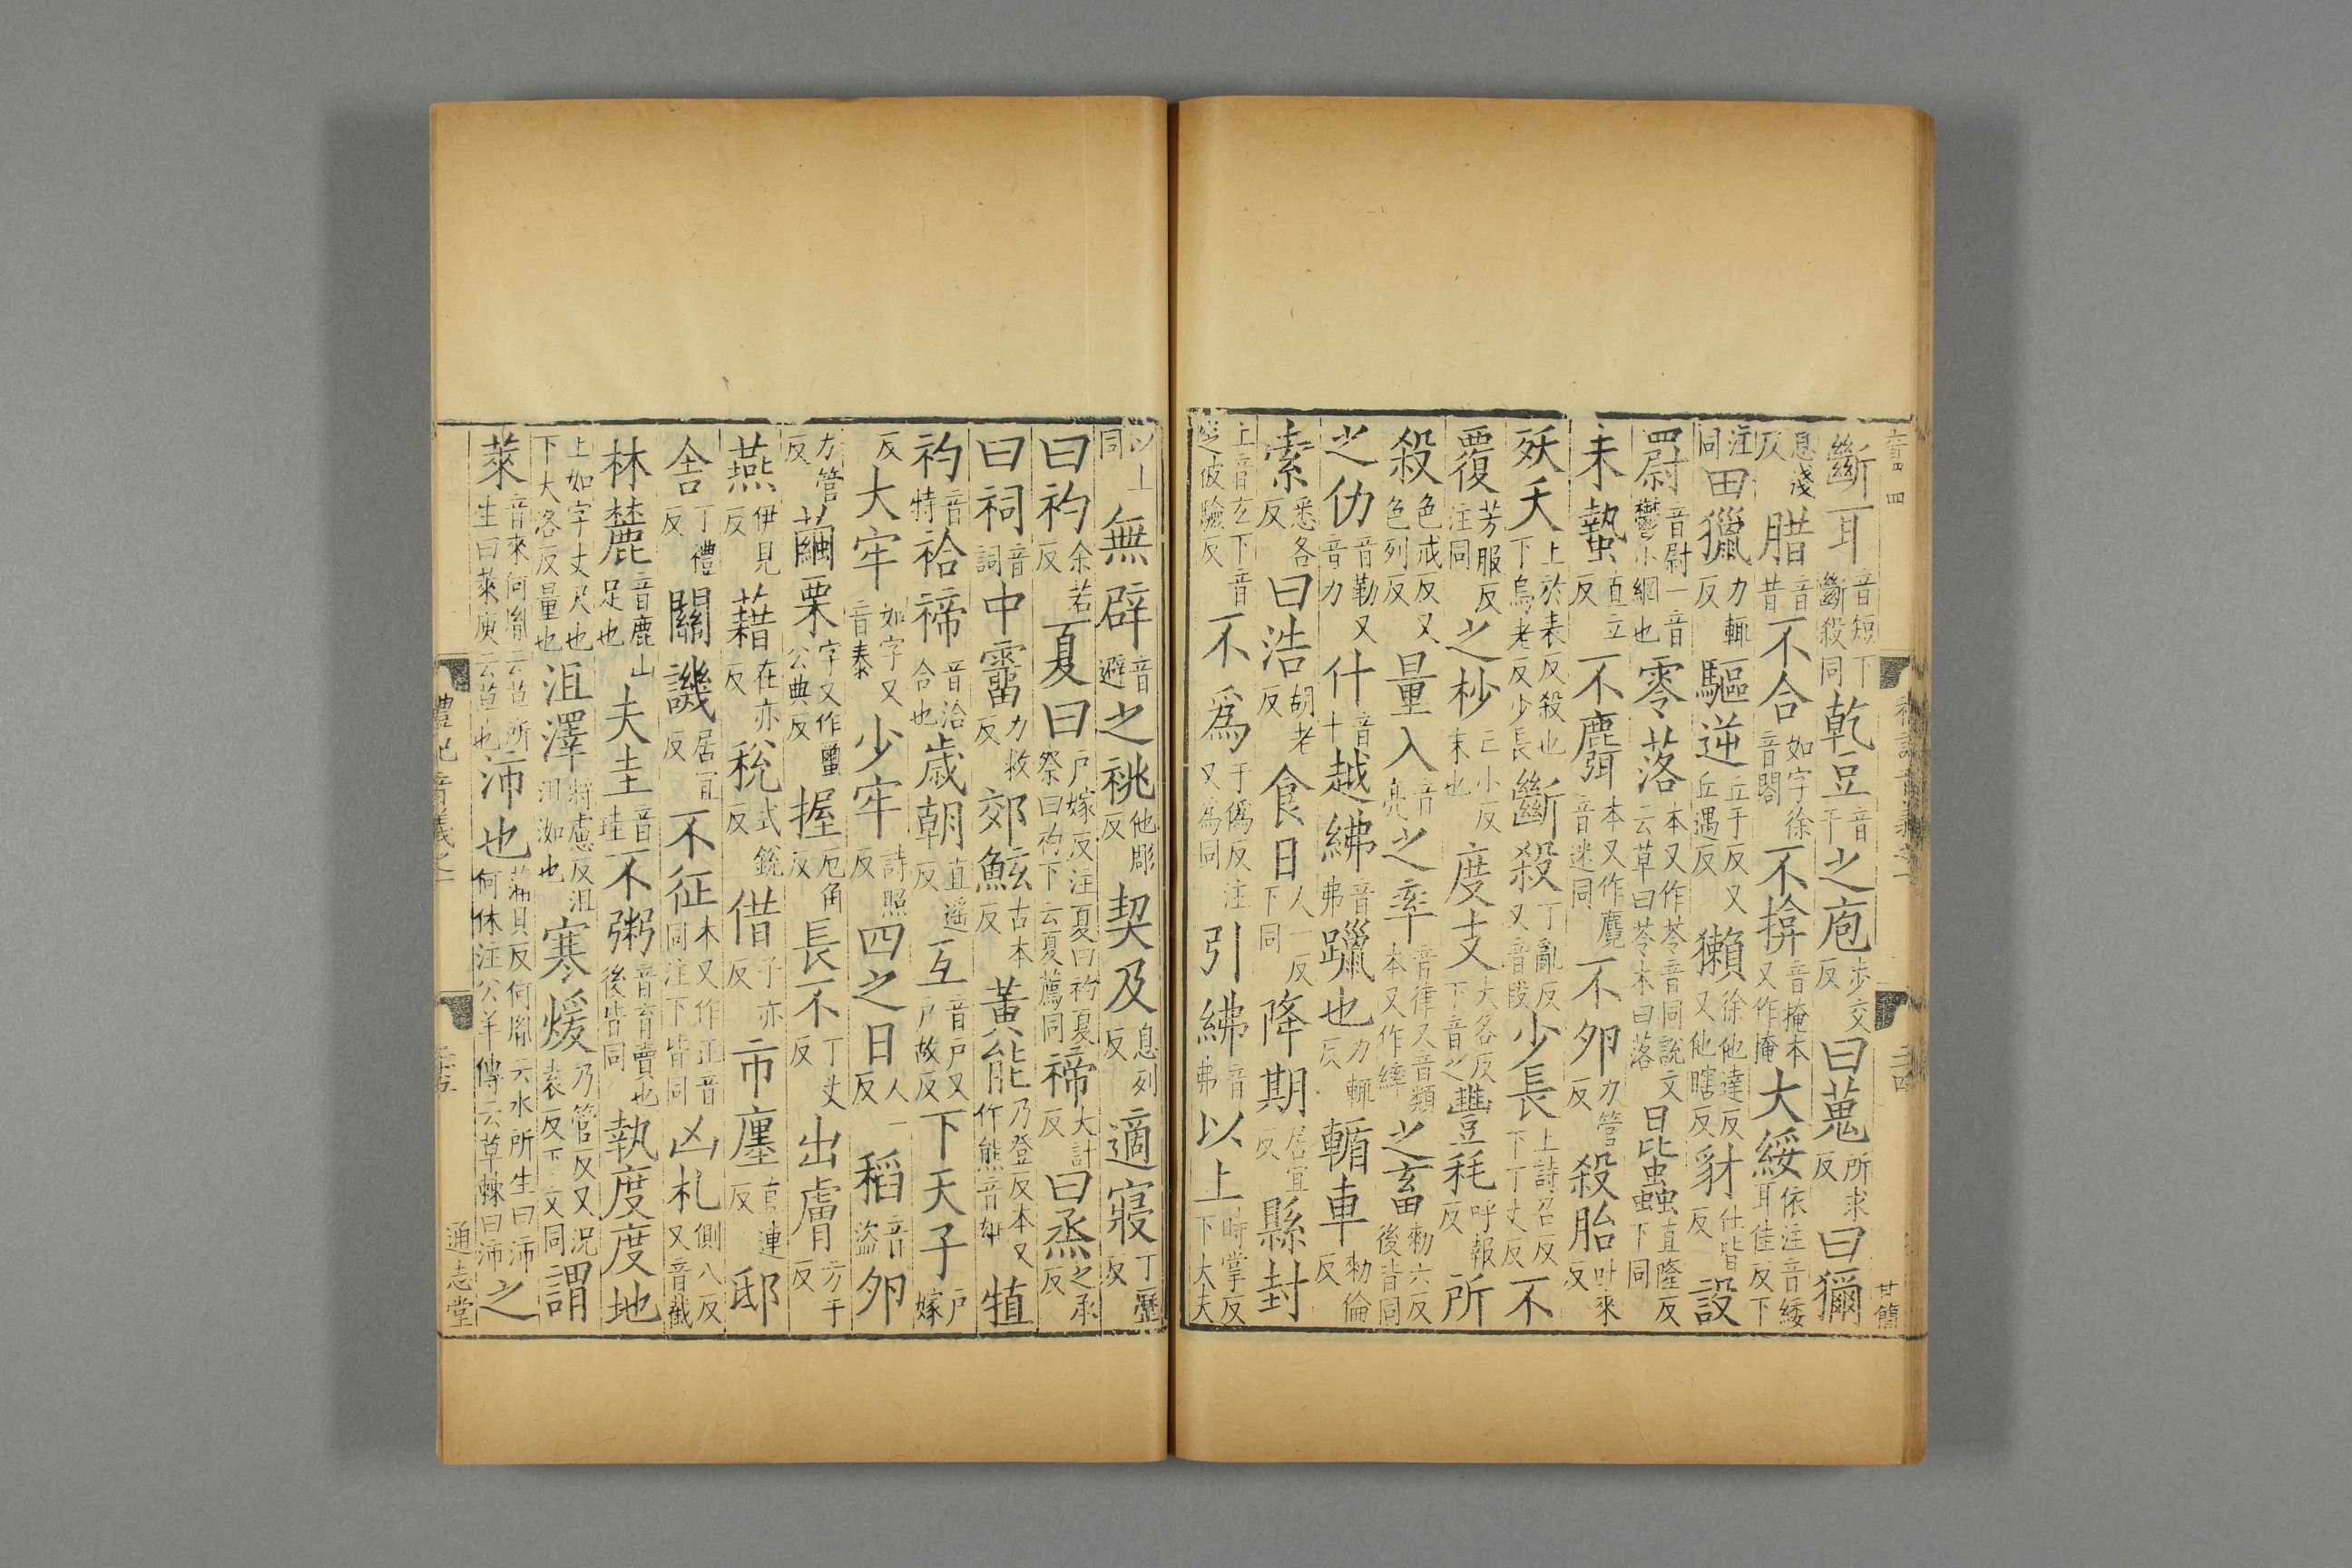 斷耳音短下斷殺同乾豆音干之庖步交反曰蒐所求反曰獮
息淺反腊音昔不合如字徐音閤不揜音掩本又作掩大綏依注音緌耳佳反下
注同田獵力輒反驅逆丘于反又丘遇反獺徐他達反又他瞎反豺仕皆反設
罻音尉一音鬱小網也零落本又作苓音同說文云草曰苓木曰落昆蟲直隆反下同
未蟄直立反不麛本又作麑音迷同不卵力管反殺胎吐來反
殀夭上於表反殺也下烏老反少長斷殺丁亂反又音段少長上詩召反下丁丈反不
覆芳服反注同之杪亡小反末也度支大各反下音之豐耗呼報反所
殺色戒反又色列反量入音亮之率音律又音類本又作繂之畜勑六反後皆同
之仂音勒又音力什音十越紼音弗躐也力輒反輴車勑倫反
索悉各反曰浩胡老反食日人一反下同降期居宜反縣封
上音玄下音窆彼驗反不爲于僞反注又爲同引紼音弗以上時掌反下大夫
以上同無辟音避之祧他彫反契及息列反適寢丁歷反
曰礿余若反夏曰戶嫁反注夏曰礿夏祭曰礿下云夏薦同禘大計反曰烝之承反
曰祠音詞中霤力救反郊鮌古本反黃能乃登反本又作熊音雄犆
礿音特祫禘音洽合也歲朝直遥反互音戶又戶故反下天子戶嫁
反大牢如字又音泰少牢詩照反四之日人一反稻音盜卵
力管反繭栗字又作䖢公典反握厄角反長不丁丈反出膚方于反
燕伊見反藉在亦反稅式銳反借子亦反市廛直連反邸
丁禮反關譏居宜反不征本又作正音同注下皆同凶札側八反又音截
林麓音鹿山足也夫圭音珪不粥音育賣也後皆同執度度地
上如字丈尺也下大洛反量也沮澤將慮反沮沮洳也寒煖乃管反又況袁反下文同謂
萊音來何胤云草所生曰萊庾云草也沛也蒲貝反何胤云水所生曰沛何休注公羊傳云草棘曰沛之
禮記音義之一
通志堂